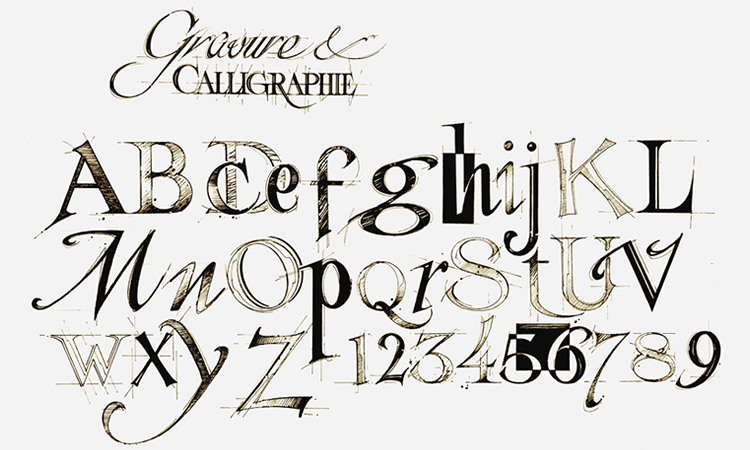 Gravure &
CALLIGRAPHIE
ABDcefghijKL
MnOpQrStUV
WXyZ 123456789